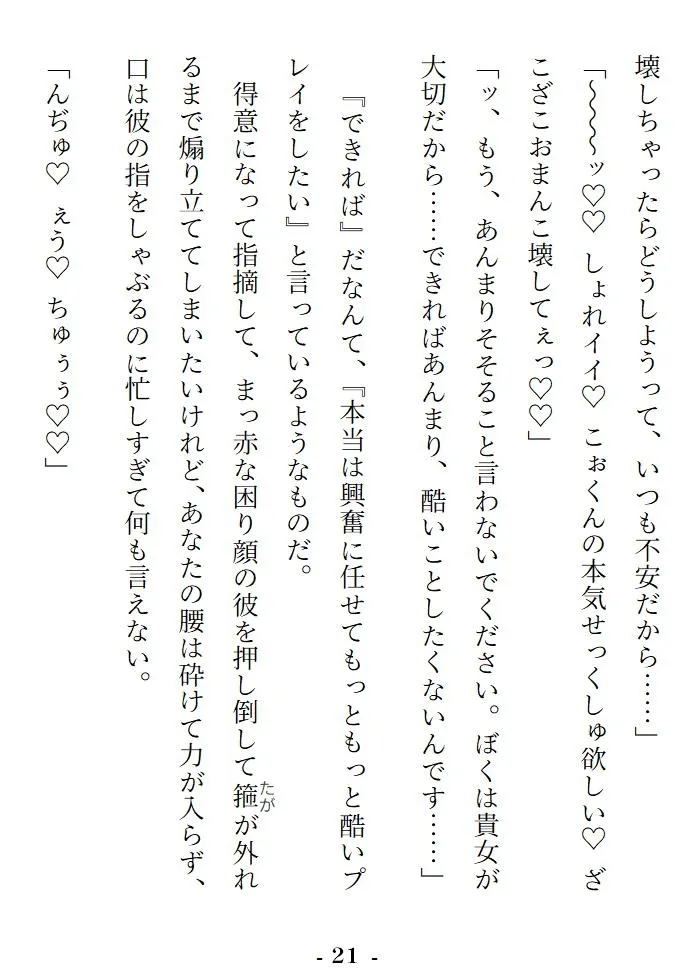 壊しちゃったらどうしようって、いつも不安だから……」
「～～～ッ♡♡　しょれイイ♡　こぉくんの本気せっくしゅ欲しい♡　ざ
こざこおまんこ壊してぇっ♡♡」
「ッ、もう、あんまりそそること言わないでください。ぼくは貴女が
大切だから……できればあんまり、酷いことしたくないんです……」
『できれば』だなんて、『本当は興奮に任せてもっともっと酷いプ
レイをしたい』と言っているようなものだ。
得意になって指摘して、まっ赤な困り顔の彼を押し倒して箍が外れ
たが
るまで煽り立ててしまいたいけれど、あなたの腰は砕けて力が入らず、
口は彼の指をしゃぶるのに忙しすぎて何も言えない。
「んぢゅ♡　ぇう♡　ちゅぅぅ♡♡」
- 21 -